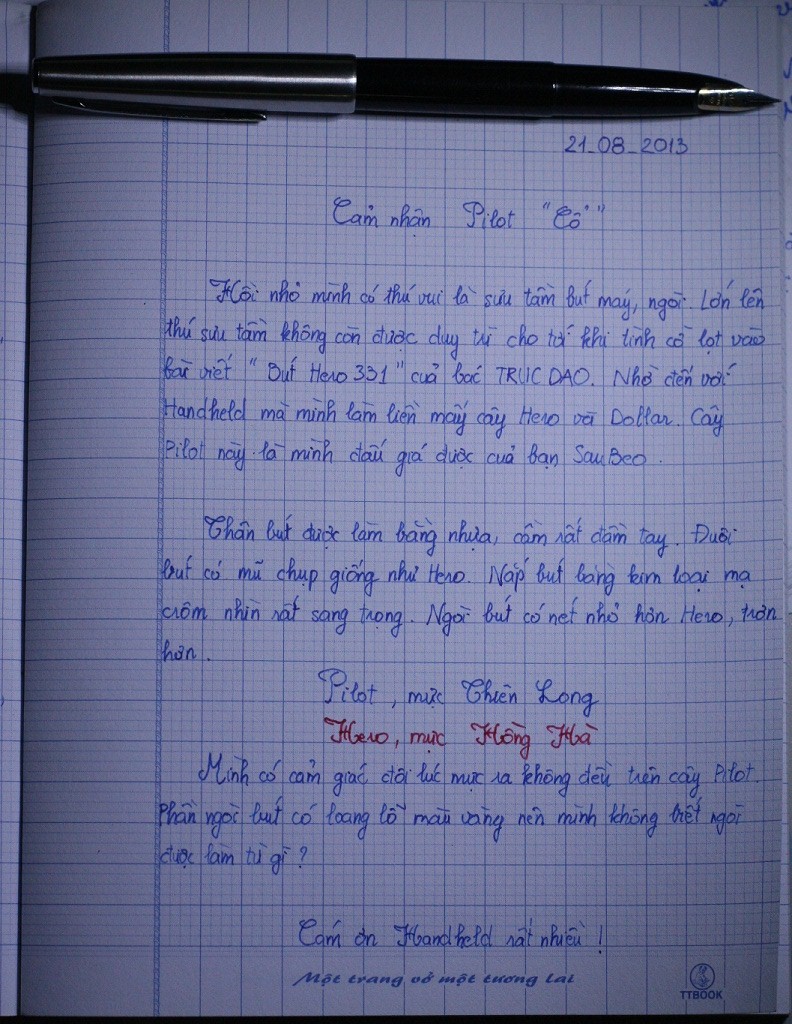 21_08_2013
Cảm nhận Pilot "Cổ"
Hồi nhỏ mình có thú vui là sưu tầm bút máy, ngòi. Lớn lên
thú sưu tầm không còn được duy trì cho tới khi tình cờ lọt vào
bài viết "Bút Hero 331" của bác TRUC DAO. Nhờ đến với
Handheld mà mình làm liền mấy cây Hero và Dollar. Cây
Pilot này là mình đấu giá được của bạn SauBeo.
Thân bút được làm bằng nhựa, cầm rất đầm tay. Đuôi
bút có mũ chụp giống như Hero. Nắp bút bằng kim loại mạ
crôm nhìn rất sang trọng. Ngòi bút có nét nhỏ hơn Hero, trơn
hơn.
Pilot, mực Thiên Long
Hero, mực Hồng Hà
Mình có cảm giác đôi lúc mực ra không đều trên cây Pilot.
Phần ngòi bút có loang lổ màu vàng nên mình không biết ngòi
được làm từ gì?
Cám ơn Handheld rất nhiều!
Một trang vở một tương lai
TTBOOK